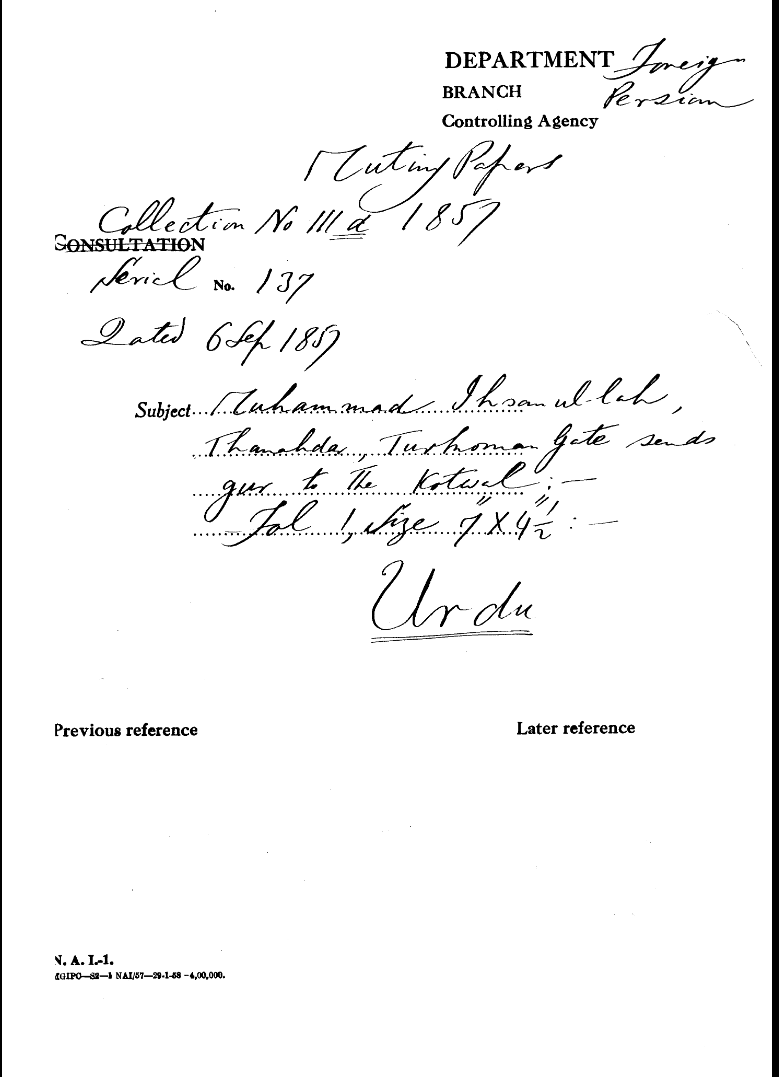 DEPARTMENT Foreign
BRANCH Persian
Controlling Agency
Mutiny Papers
Collection No III a 1857
CONSULTATION
Serial No. 137
Dated 6 Sep 1857
Subject Muhammad Ihsanullah,
Thanahdar, Turkoman Gate sends
gur to the Kotwal :—
Fol 1, Size 7" X 4½" :—
Urdu
Previous reference Later reference
N. A. I.-1.
MGIPC—S2—1 NAI/57—29-1-58 —4,00,000.